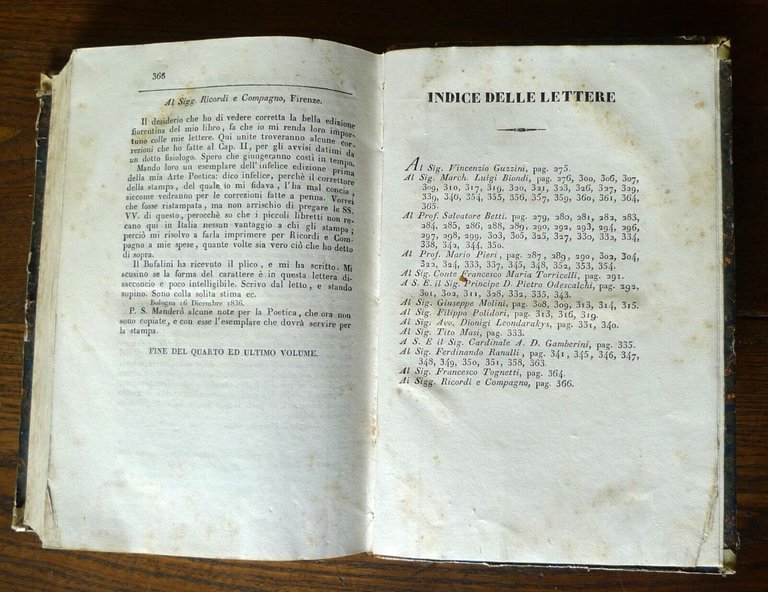 366
Al Sigg. Ricordi e Compagno, Firenze.
Il desiderio che ho di vedere corretta la bella edizione
fiorentina del mio libro, fa che io mi renda loro impor-
tuno colle mie lettere. Qui unite troveranno alcune cor-
rezioni che ho fatte al Cap. II, per gli avvisi datimi da
un dotto fisiologo. Spero che giungeranno costì in tempo.
Mando loro un esemplare dell'infelice edizione prima
della mia Arte Poetica: dico infelice, perchè il correttore
della stampa, del quale io mi fidava, l'ha mal concia,
siccome vedranno per le correzioni fatte a penna. Vorrei
che fosse ristampata, ma non arrischio di pregare le SS.
VV. di questo, perocchè so che i piccoli libretti non re-
cano qui in Italia nessun vantaggio a chi gli stampa;
perciò mi risolvo a farla imprimere per Ricordi e Com-
pagno a mie spese, quante volte sia vero ciò che ho detto
di sopra.
Il Bufalini ha ricevuto il plico, e mi ha scritto. Mi
scusino se la forma del carattere è in questa lettera di-
sacconcio e poco intelligibile. Scrivo dal letto, e stando
supino. Sono colla solita stima ec.
Bologna 16 Dicembre 1836.
P. S. Manderò alcune note per la Poetica, che ora non
sono copiate, e con esse l'esemplare che dovrà servire per
la stampa.
FINE DEL QUARTO ED ULTIMO VOLUME.
INDICE DELLE LETTERE
Al Sig. Vincenzio Guzzini, pag. 275.
Al Sig. March. Luigi Biondi, pag. 276, 300, 306, 307,
309, 310, 317, 319, 320, 321, 323, 326, 327, 329,
339, 340, 354, 355, 356, 357, 359, 360, 361, 364,
365.
Al Prof. Salvatore Betti. pag. 279, 280, 281, 282, 283,
284, 285, 286, 288, 289, 290, 292, 293, 294, 296,
297, 298, 299, 303, 305, 325, 327, 330, 332, 334,
338, 342, 344, 350.
Al Prof. Mario Pieri, pag. 287, 289, 290, 302, 304,
322, 324, 333, 337, 345, 348, 352, 353, 354.
Al Sig. Conte Francesco Maria Torricelli, pag. 291.
A S. E. il Sig. Principe D. Pietro Odescalchi, pag. 292,
301, 302, 311, 328, 332, 335, 343.
Al Sig. Giuseppe Molini, pag. 308, 309, 313, 314, 315.
Al Sig. Filippo Polidori, pag. 313, 316, 319.
Al Sig. Avv. Dionigi Leondarakys, pag. 331, 340.
Al Sig. Tito Masi, pag. 333.
A S. E il Sig. Cardinale A. D. Gamberini, pag. 335.
Al Sig. Ferdinando Ranalli, pag. 341, 345, 346, 347,
348, 349, 350, 351, 358, 363.
Al Sig. Francesco Tognetti, pag. 364.
Ai Sigg. Ricordi e Compagno, pag. 366.